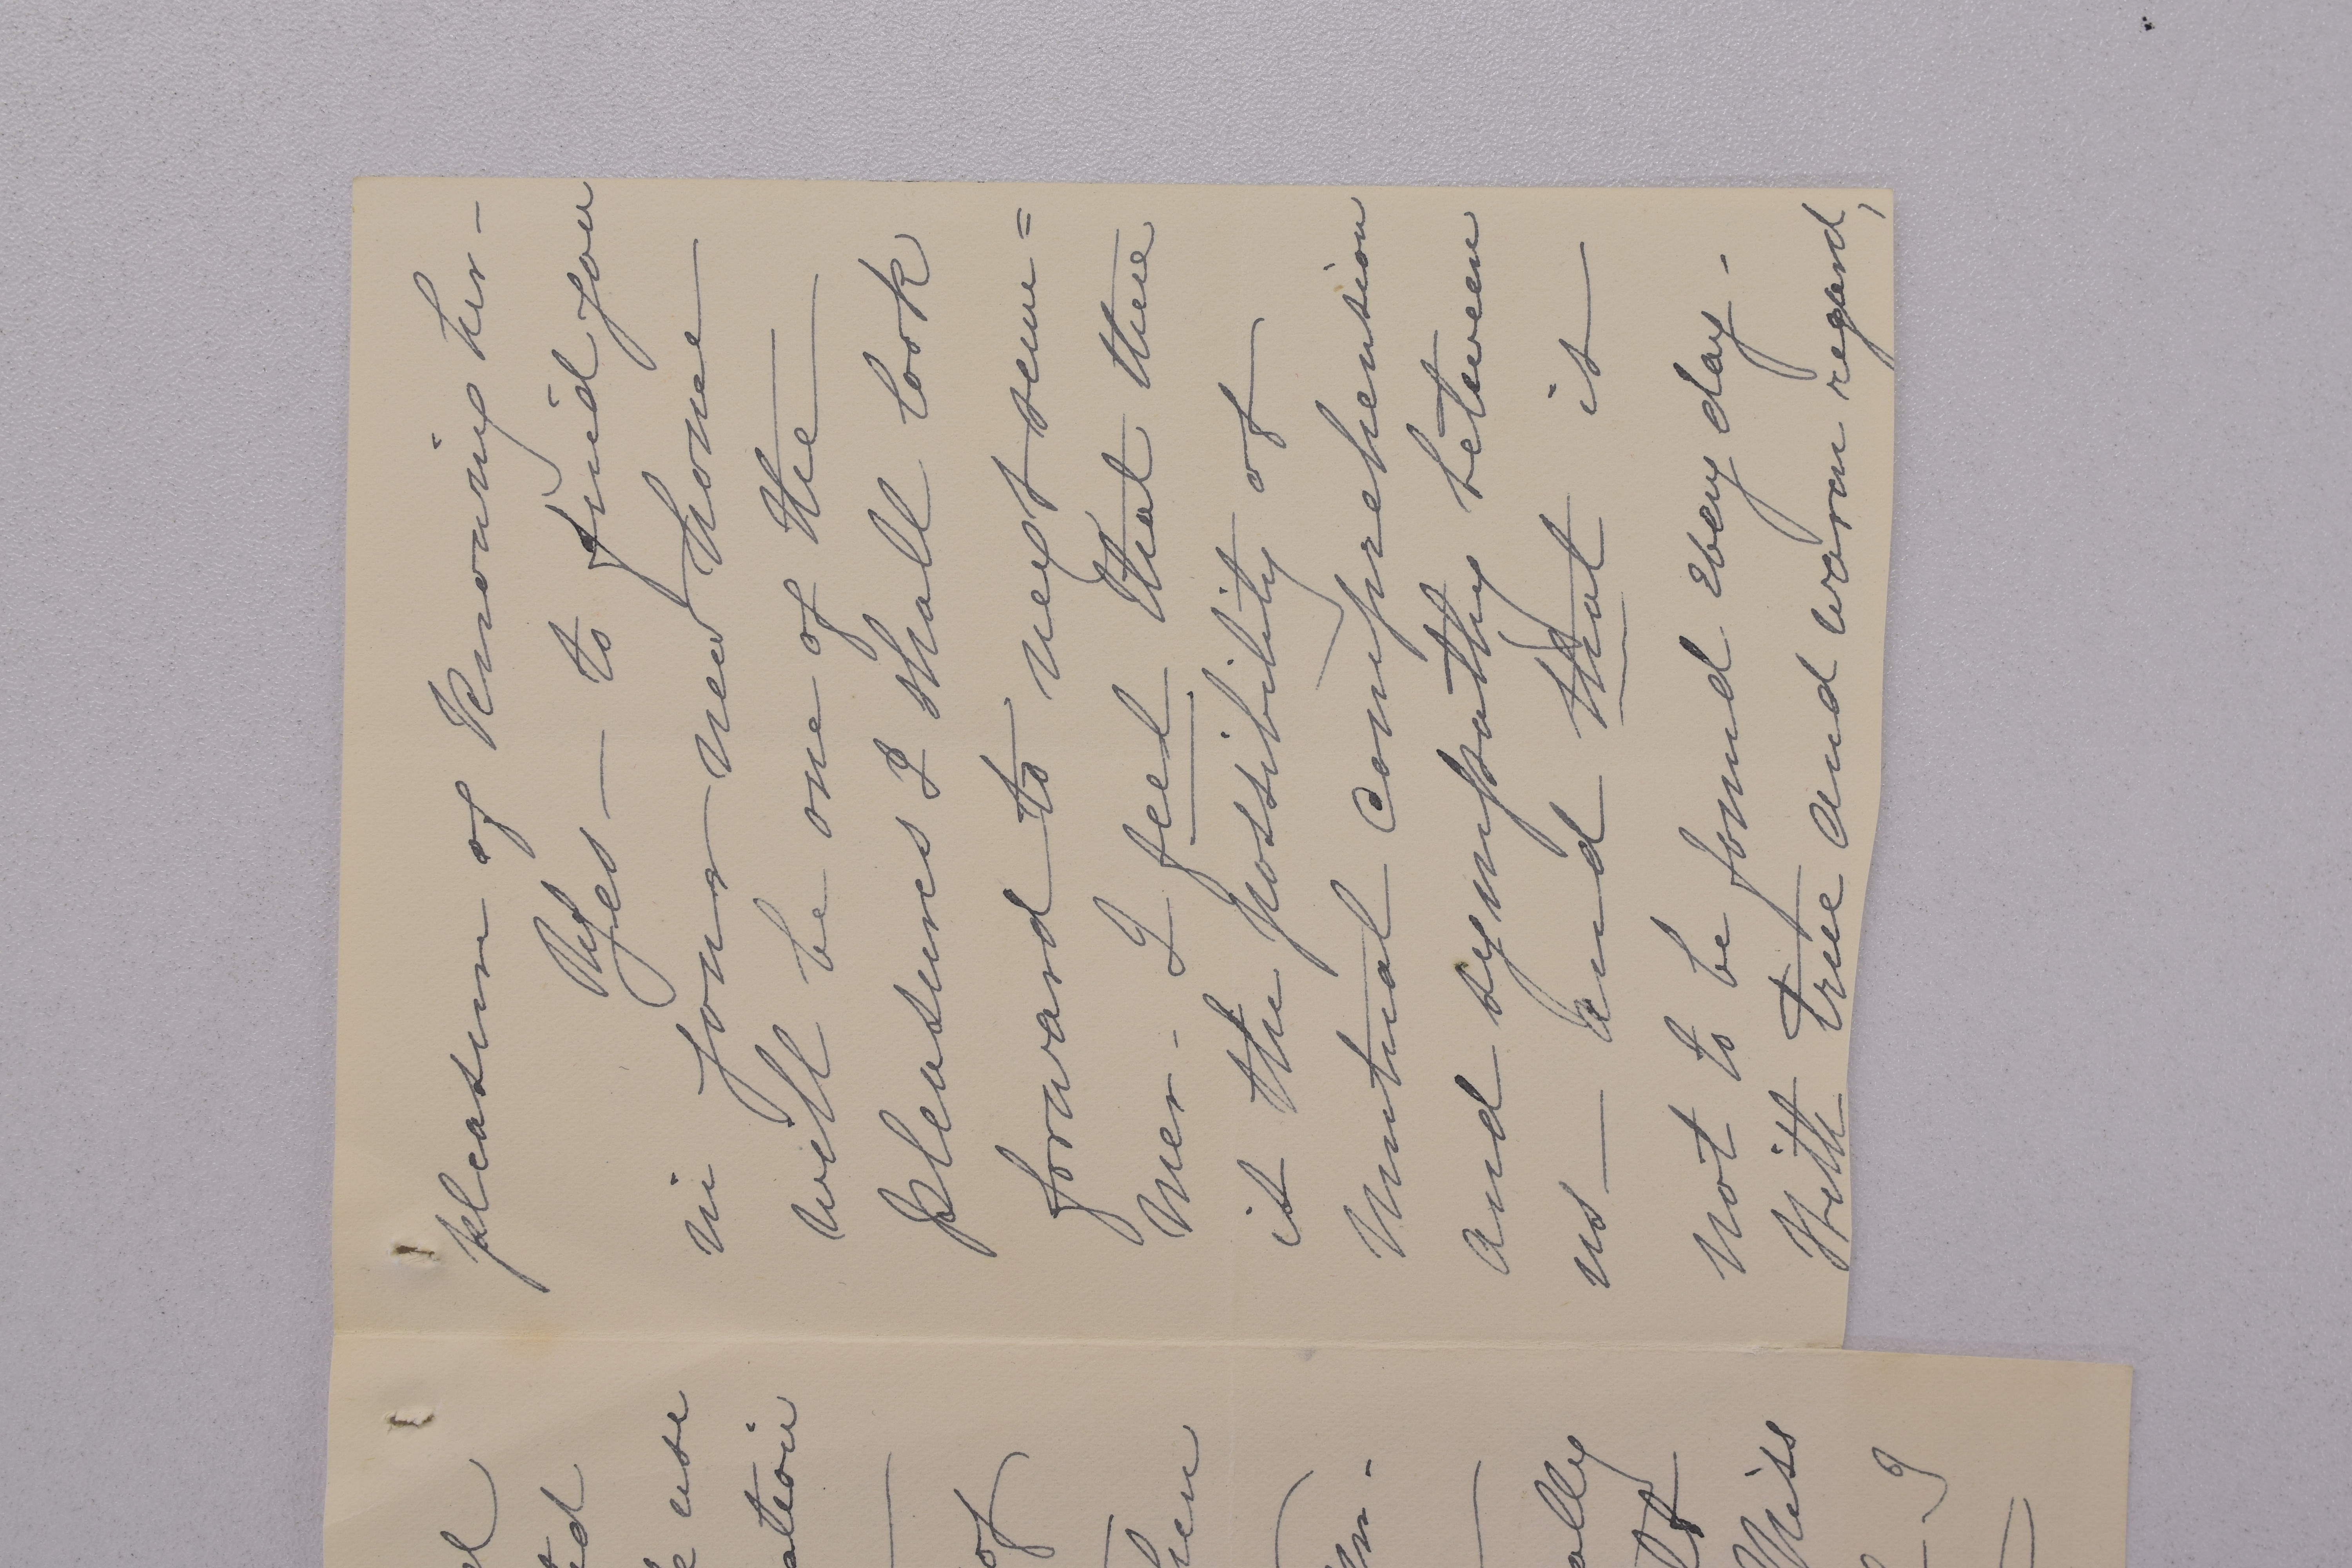 pleasure of knowing her -
Yes — to find you
in your new home
will be one of the
pleasures I shall look
forward to next sum=
mer - I feel that there
is the possibility of
mutual comprehension
and sympathy between
us — and that is
not to be found every day -
With true and warm regard,
use
of
Miss